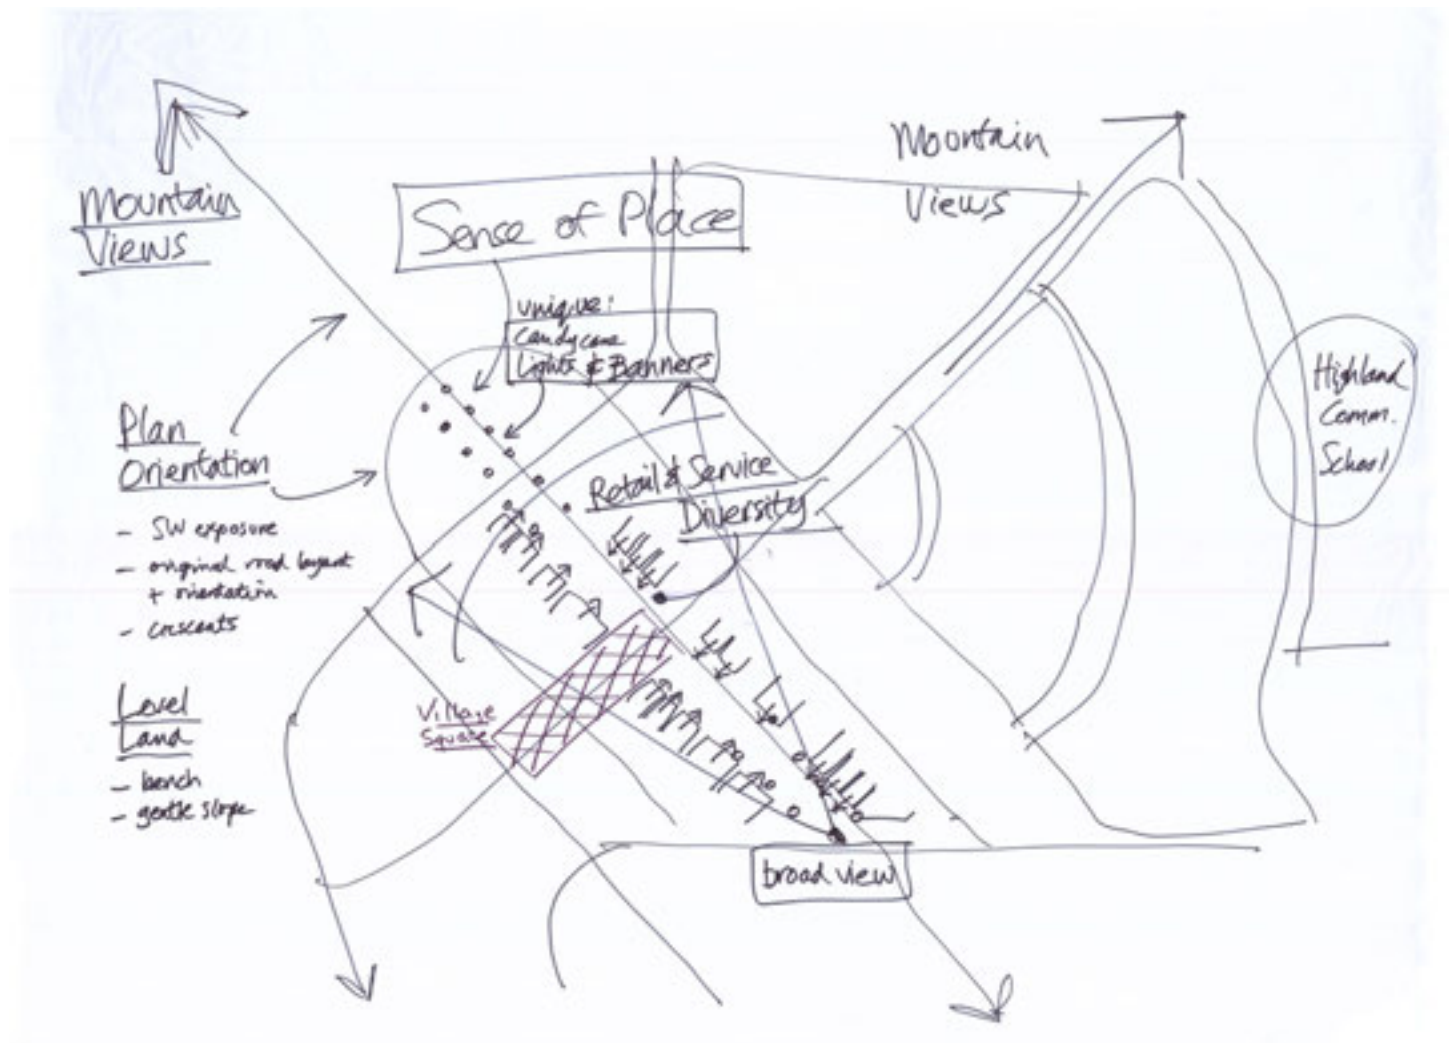 Mountain
Views
Sense of Place
Moontain
Views
unique:
candycane
Lights & Banners
Highland
Comm.
School
Plan
Orientation
- SW exposure
- original road layout
+ orientation
- crescents
Retail & Service
Diversity
Level
Land
- bench
- gentle slope
Village
Square
broad view